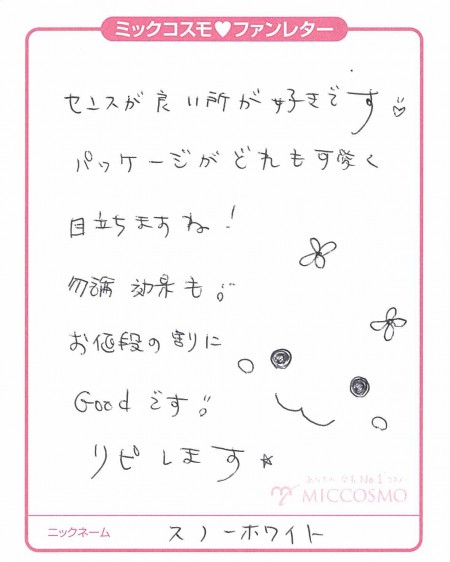 ミックコスモ♥ファンレター
センスが良い所が好きです
パッケージがどれも可愛く
目立ちますね！
勿論 効果も
お値段の割に
Goodです
リピします☆
MICCOSMO
ニックネーム
スノーホワイト